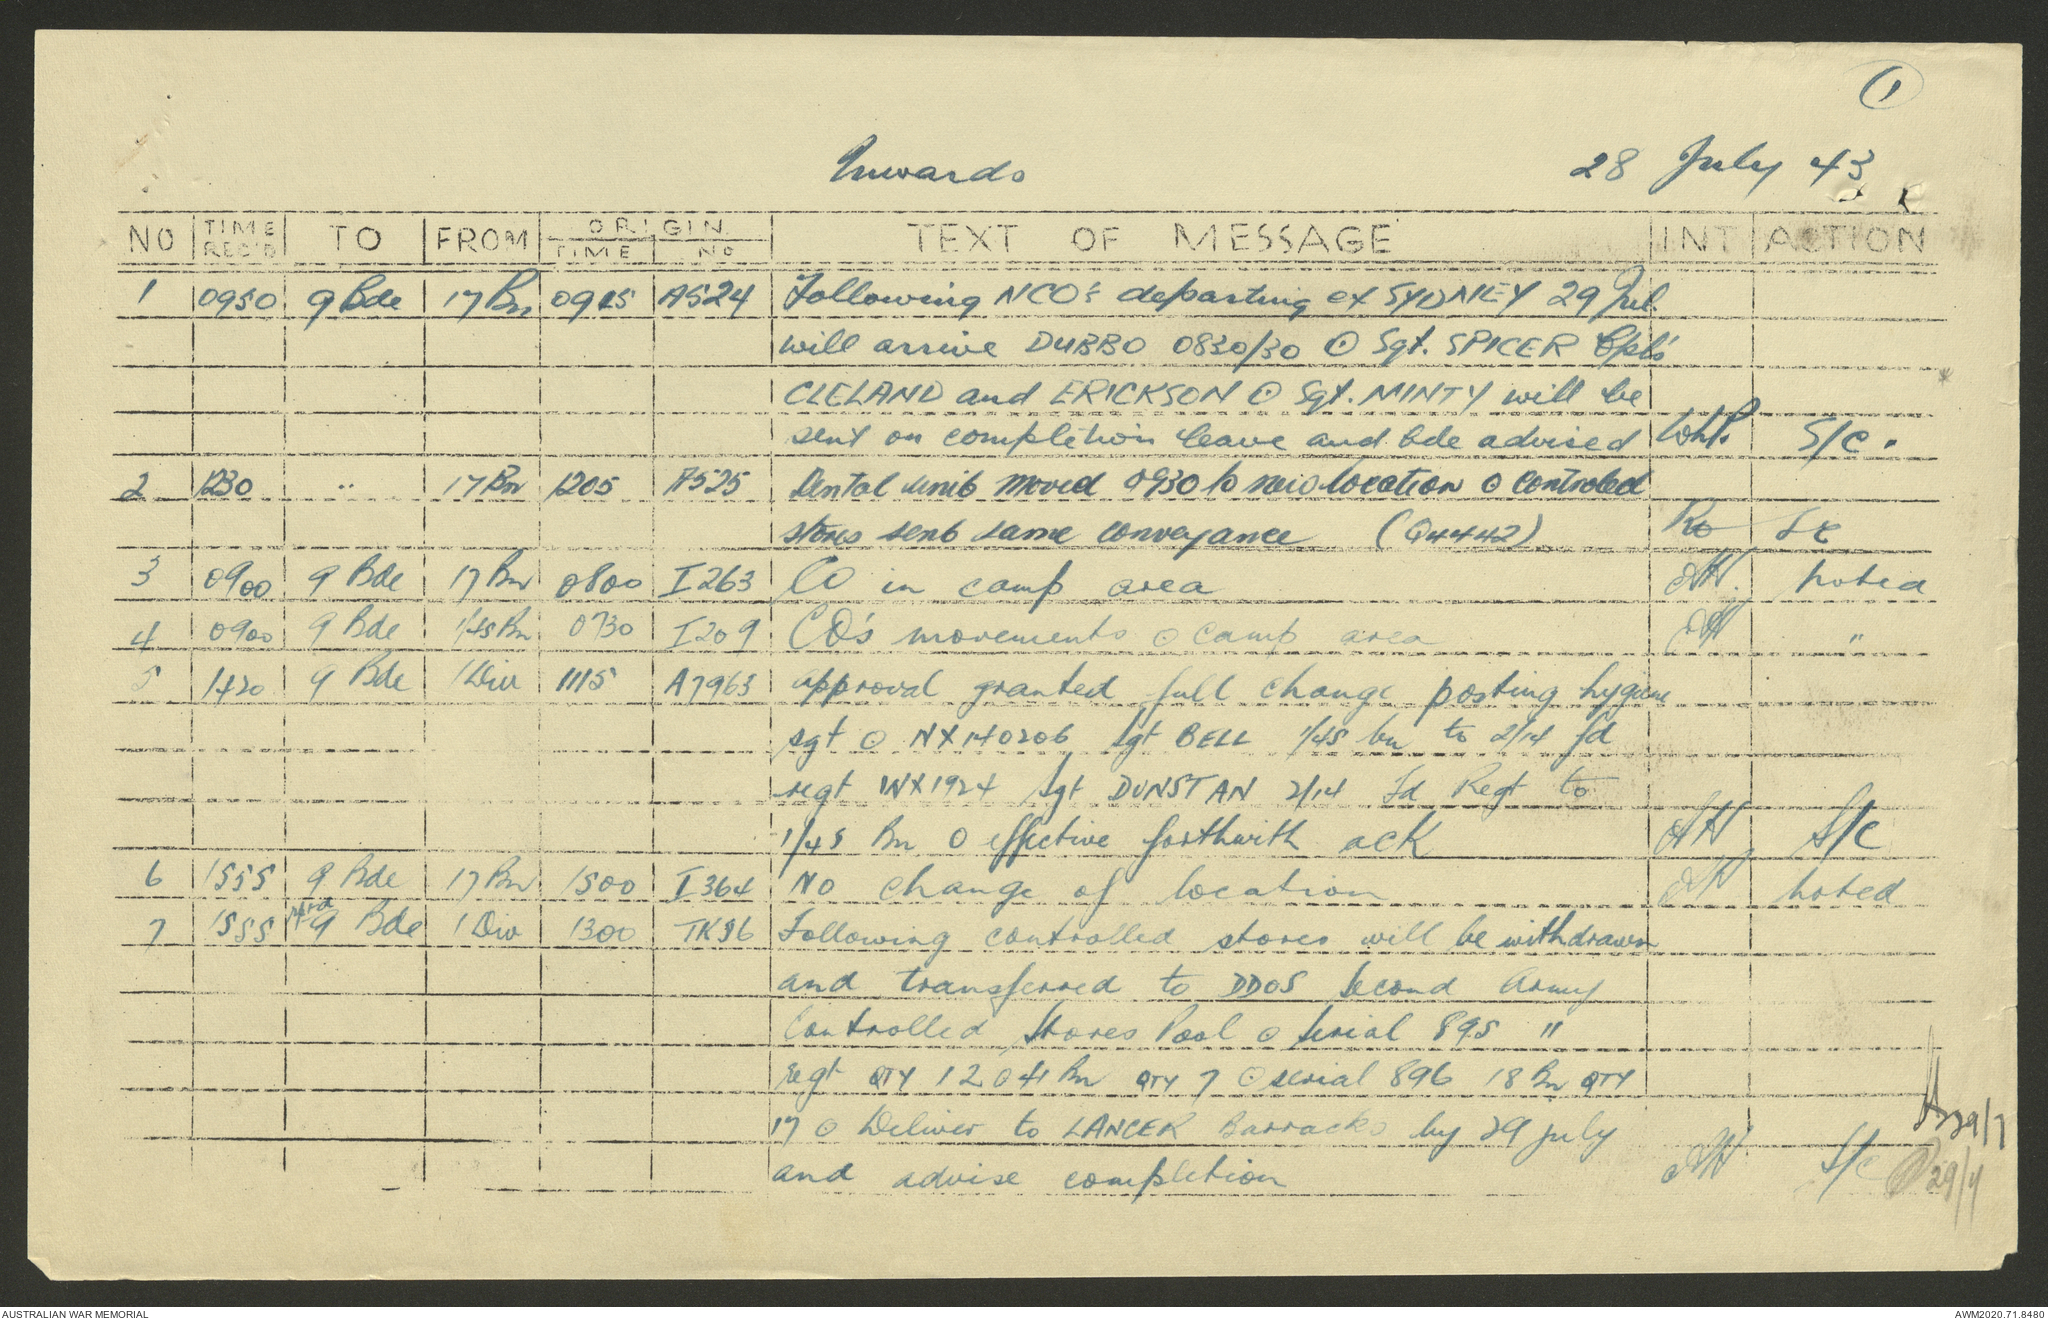 1
Inwards 28 July 43
NO TIME REC'D TO FROM ORIGIN TIME NO TEXT OF MESSAGE INT ACTION
1 0950 9 Bde 17 Bn 0915 A524 Following NCO's departing ex SYDNEY 29 Jul
will arrive DUBBO 0830/30 ⊙ Sgt. SPICER Cpl's
CLELAND and ERICKSON ⊙ Sgt. MINTY will be
sent on completion leave and bde advised S/C.
2 1230 " 17 Bn 1205 A525 Dental unit moved 0930 to location ⊙ controled
stores sent same conveyance (Q4442) SC
3 0900 9 Bde 17 Bn 0800 I263 CO in camp area noted
4 0900 9 Bde 1/45 Bn 0730 I209 CO's movements ⊙ camp area "
5 1420 9 Bde 1 Div 1115 A7963 approval granted full change posting hygiene
sgt ⊙ NX140206 Sgt BELL 1/45 bn to 2/14 fd
regt WX1924 Sgt DUNSTAN 2/14 Fd Regt to
1/45 Bn ⊙ effective forthwith ack S/C
6 1555 9 Bde 17 Bn 1500 I364 No change of location noted
7 1555 9 Bde 1 Div 1300 TK96 Following controlled stores will be withdrawn
and transferred to DDOS Second Army
Controlled Stores Pool ⊙ Serial 895 "
regt QTY 12 ⊙ 41 Bn QTY 7 ⊙ serial 896 18 Bn QTY
17 ⊙ Deliver to LANCER Barracks by 29 july 29/7
and advise completion S/C 29/7
AUSTRALIAN WAR MEMORIAL AWM2020.71.8480